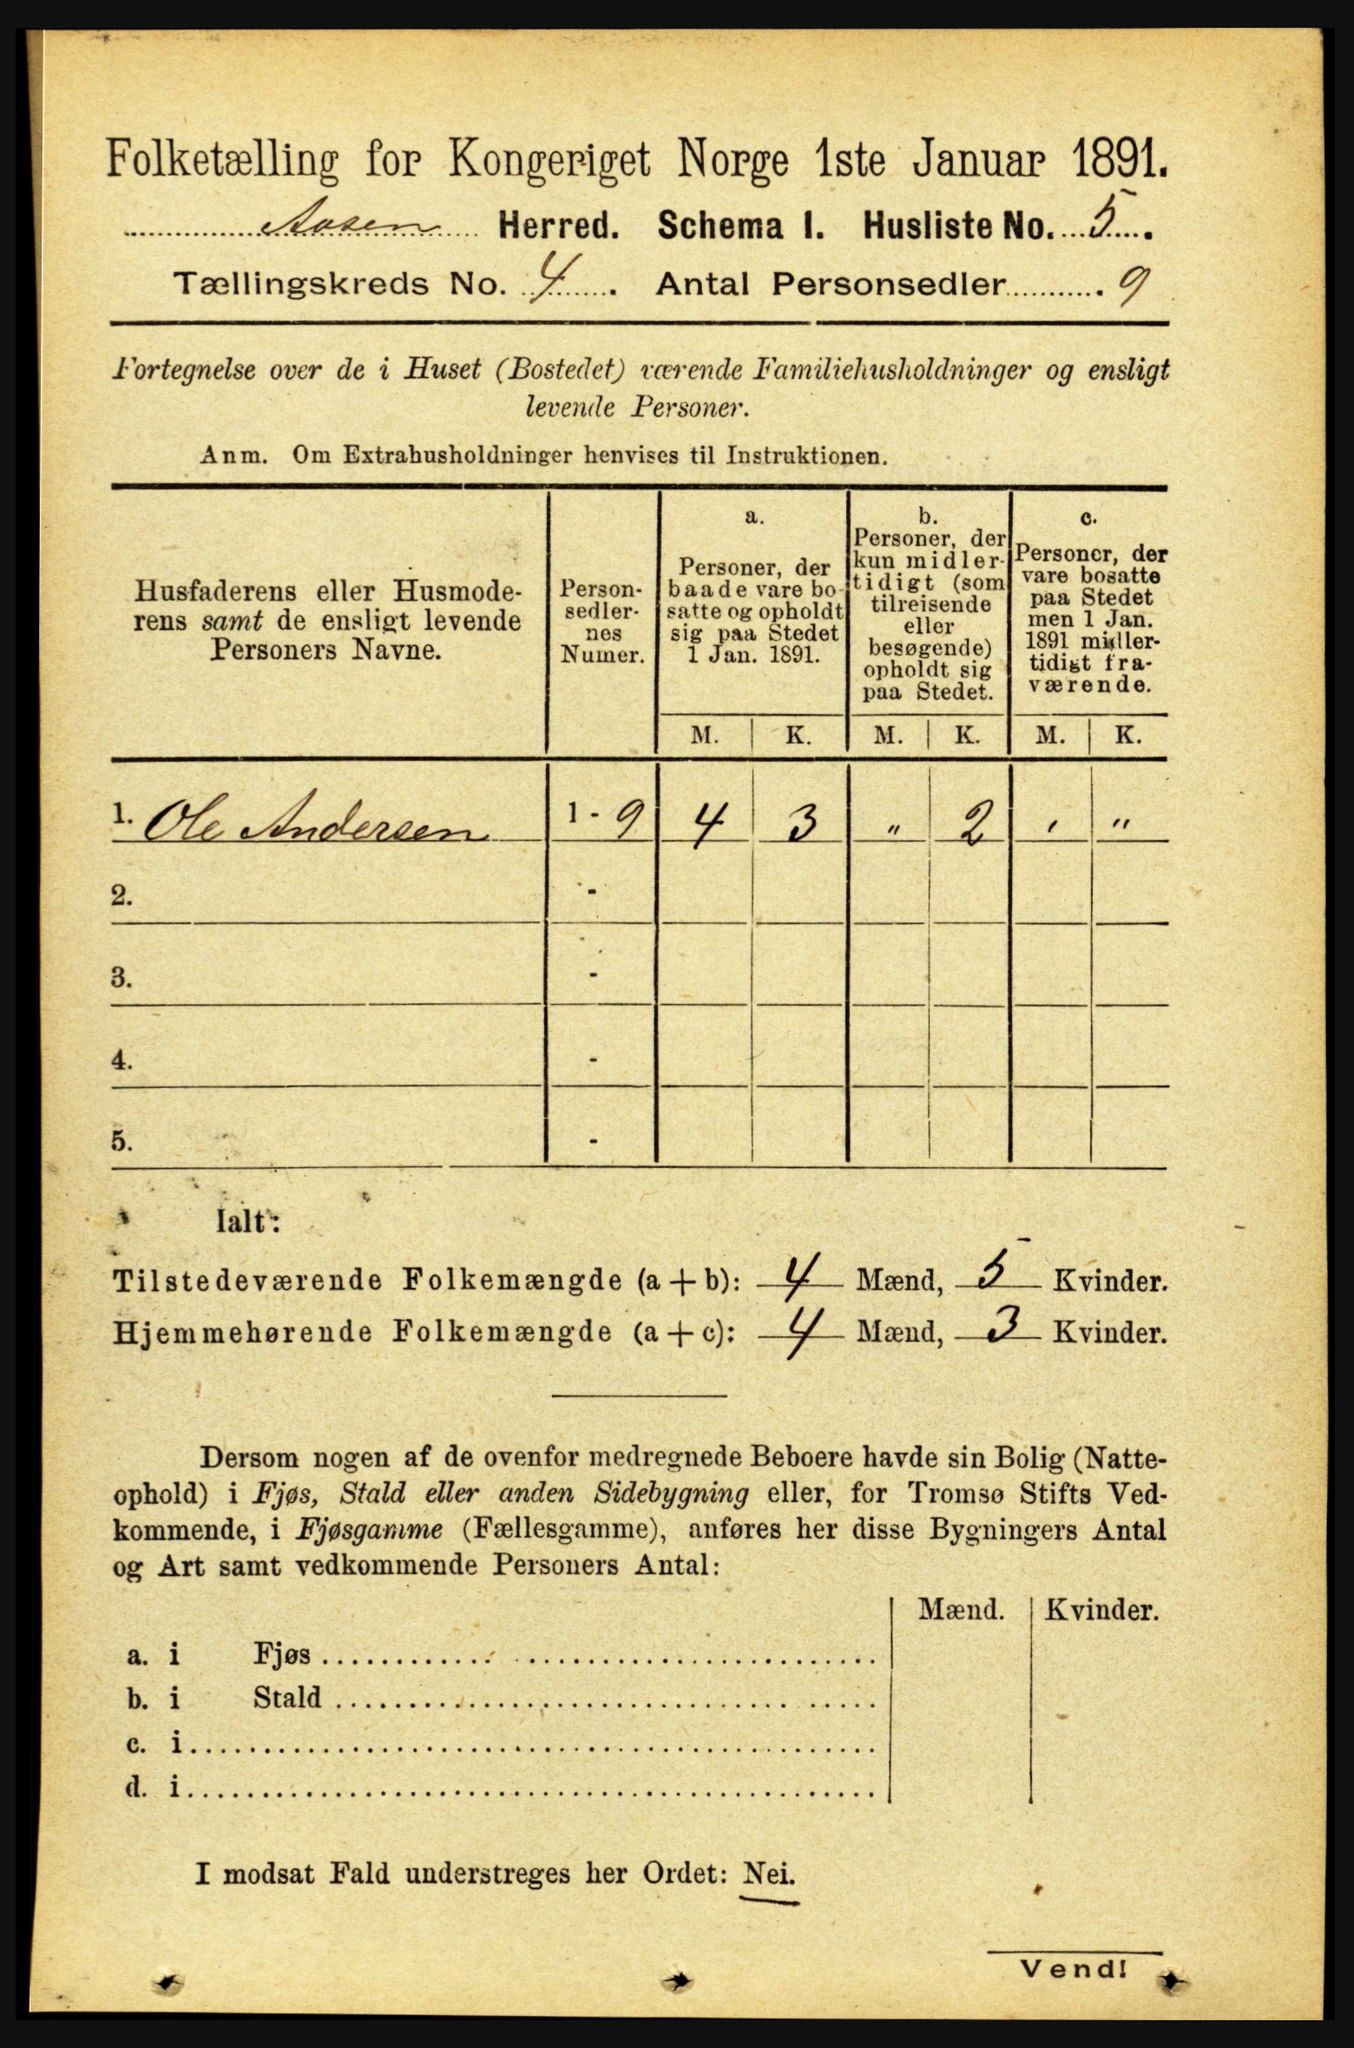 Folketælling for Kongeriget Norge 1ste Januar 1891.
Aasen Herred. Schema 1. Husliste No. 5.
Tællingskreds No. 4. Antal Personsedler 9
Fortegnelse over de i Huset (Bostedet) værende Familiehusholdninger og ensligt
levende Personer.
Anm. Om Extrahusholdninger henvises til Instruktionen.
Husfaderens eller Husmode-
rens samt de ensligt levende
Personers Navne.
Person-
sedler-
nes
Numer.
a.
Personer, der
baade vare bo-
satte og opholdt
sig paa Stedet
1 Jan. 1891.
b.
Personer, der
kun midler-
tidigt (som
tilreisende
eller
besøgende)
opholdt sig
paa Stedet.
c.
Personer, der
vare bosatte
paa Stedet
men 1 Jan.
1891 midler-
tidigt fra-
værende.
M. K. M. K. M. K.
1. Ole Andersen 1 - 9 4 3 " 2 ' "
2. -
3. -
4. -
5. -
Ialt:
Tilstedeværende Folkemængde (a + b): 4 Mænd, 5 Kvinder.
Hjemmehørende Folkemængde (a + c): 4 Mænd, 3 Kvinder.
Dersom nogen af de ovenfor medregnede Beboere havde sin Bolig (Natte-
ophold) i Fjøs, Stald eller anden Sidebygning eller, for Tromsø Stifts Ved-
kommende, i Fjøsgamme (Fællesgamme), anføres her disse Bygningers Antal
og Art samt vedkommende Personers Antal:
Mænd. Kvinder.
a. i Fjøs
b. i Stald
c. i
d. i
I modsat Fald understreges her Ordet: Nei.
Vend!